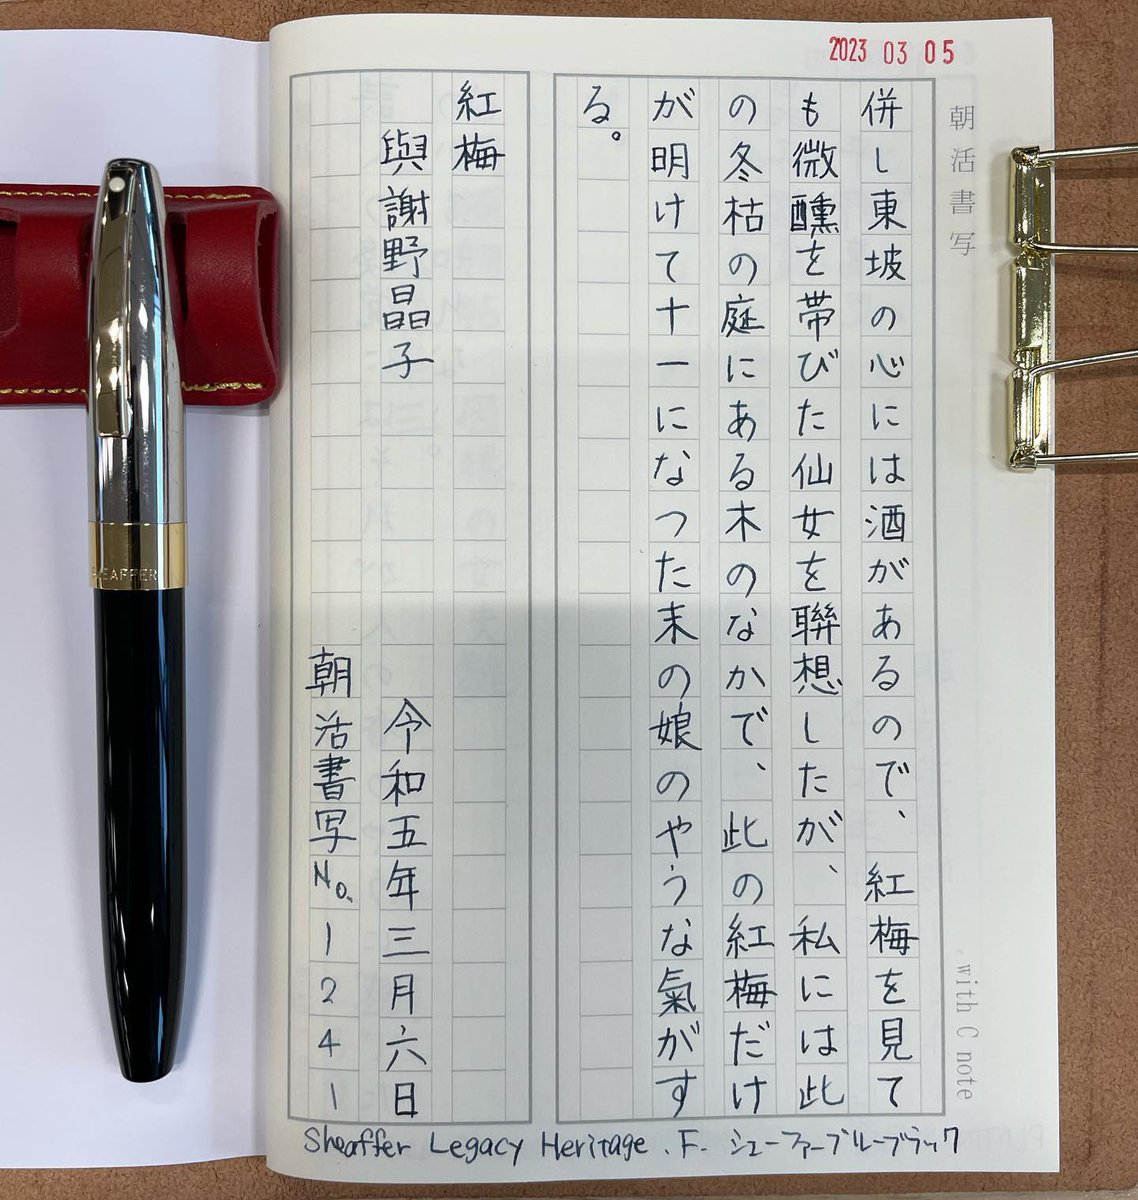 2023 03 05
朝活書写
併し東坡の心には酒があるので、紅梅を見て
も微醺を帯びた仙女を聯想したが、私には此
の冬枯の庭にある木のなかで、此の紅梅だけ
が明けて十一になつた末の娘のやうな氣がす
る。
紅梅
與謝野晶子
令和五年三月六日
朝活書写No.1241
with C note
Sheaffer Legacy Heritage . F. シェーファーブルーブラック
SHEAFFER